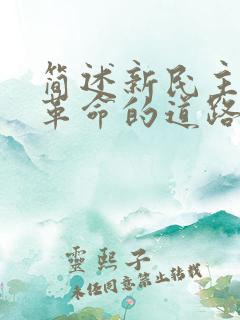 简述新民主
革命的道路
靈熙子
未经同意禁止转载